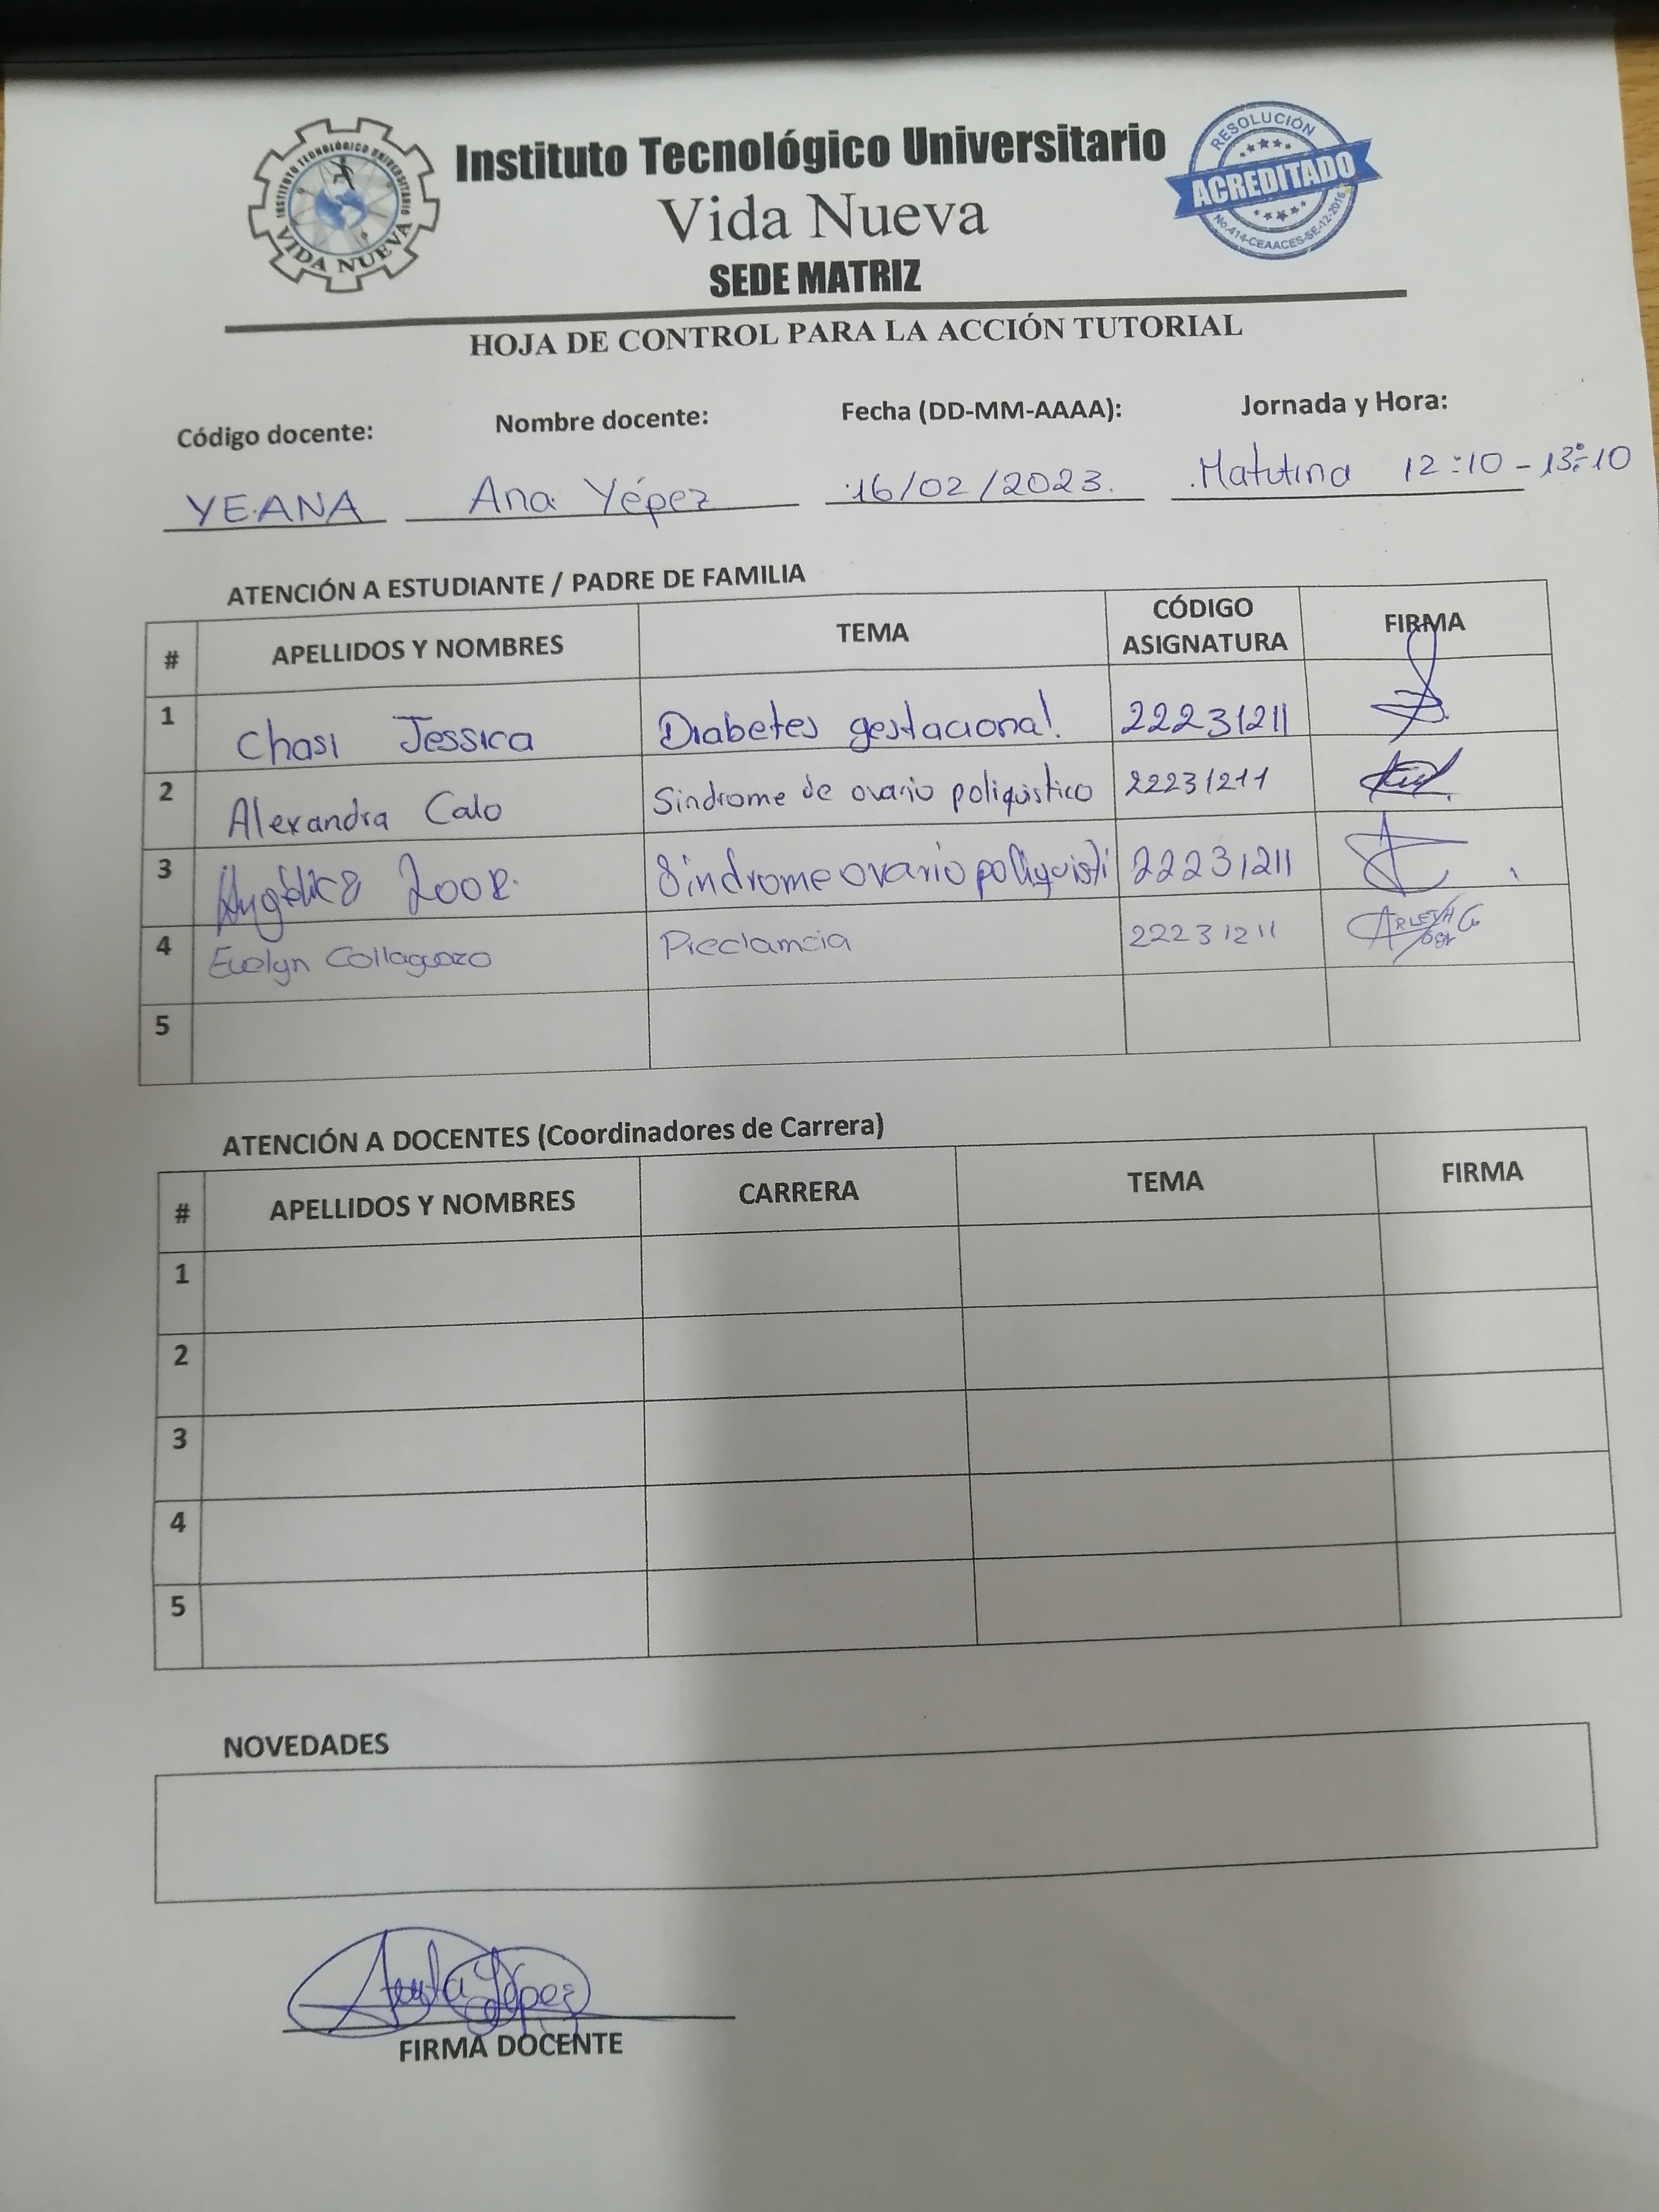 INSTITUTO TECNOLÓGICO UNIVERSITARIO
VIDA NUEVA
Instituto Tecnológico Universitario
Vida Nueva
SEDE MATRIZ
RESOLUCIÓN
ACREDITADO
No.414-CEAACES-SE-12-2016
HOJA DE CONTROL PARA LA ACCIÓN TUTORIAL
Código docente: Nombre docente: Fecha (DD-MM-AAAA): Jornada y Hora:
YEANA Ana Yépez 16/02/2023. Matutina 12:10-13:10
ATENCIÓN A ESTUDIANTE / PADRE DE FAMILIA
# APELLIDOS Y NOMBRES TEMA CÓDIGO ASIGNATURA FIRMA
1 Chasi Jessica Diabetes gestacional. 22231211
2 Alexandra Calo Sindrome de ovario poliquistico 22231211
3 Angélica Sindrome ovario poliquisti 22231211
4 Evelyn Collaguazo Preclamcia 22231211
5
ATENCIÓN A DOCENTES (Coordinadores de Carrera)
# APELLIDOS Y NOMBRES CARRERA TEMA FIRMA
1
2
3
4
5
NOVEDADES
FIRMA DOCENTE